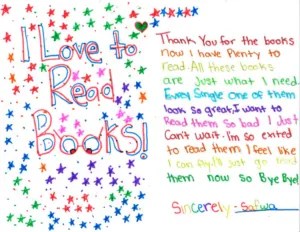 I Love to
Read
Books!
Thank You for the books
now I have Plenty to
read. All these books
are just what I need.
Every Single one of them
look so great, I want to
Read them so bad I Just
Can't wait. I'm so exited
to read them I feel like
I can fly. I'll just go read
them now so Bye Bye!
Sincerely - Safwa